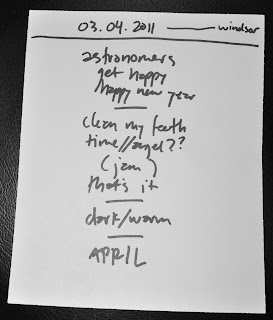 03.04.2011 windsor
astronomers
get happy
happy new year
clean my teeth
time//angel??
(jam)
that's it
dark/warm
APRIL